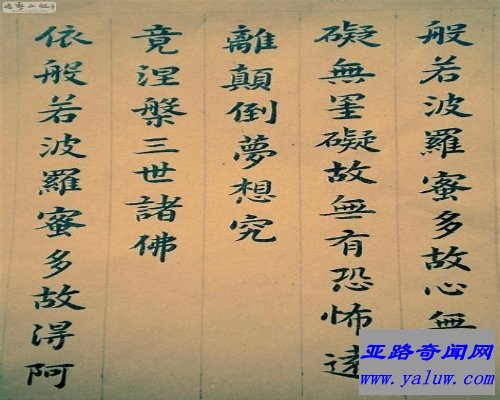 般若波羅蜜多故心無
礙無罣礙故無有恐怖遠
離顛倒夢想究
竟涅槃三世諸佛
依般若波羅蜜多故得阿
亚路奇闻网
www.yaluw.com